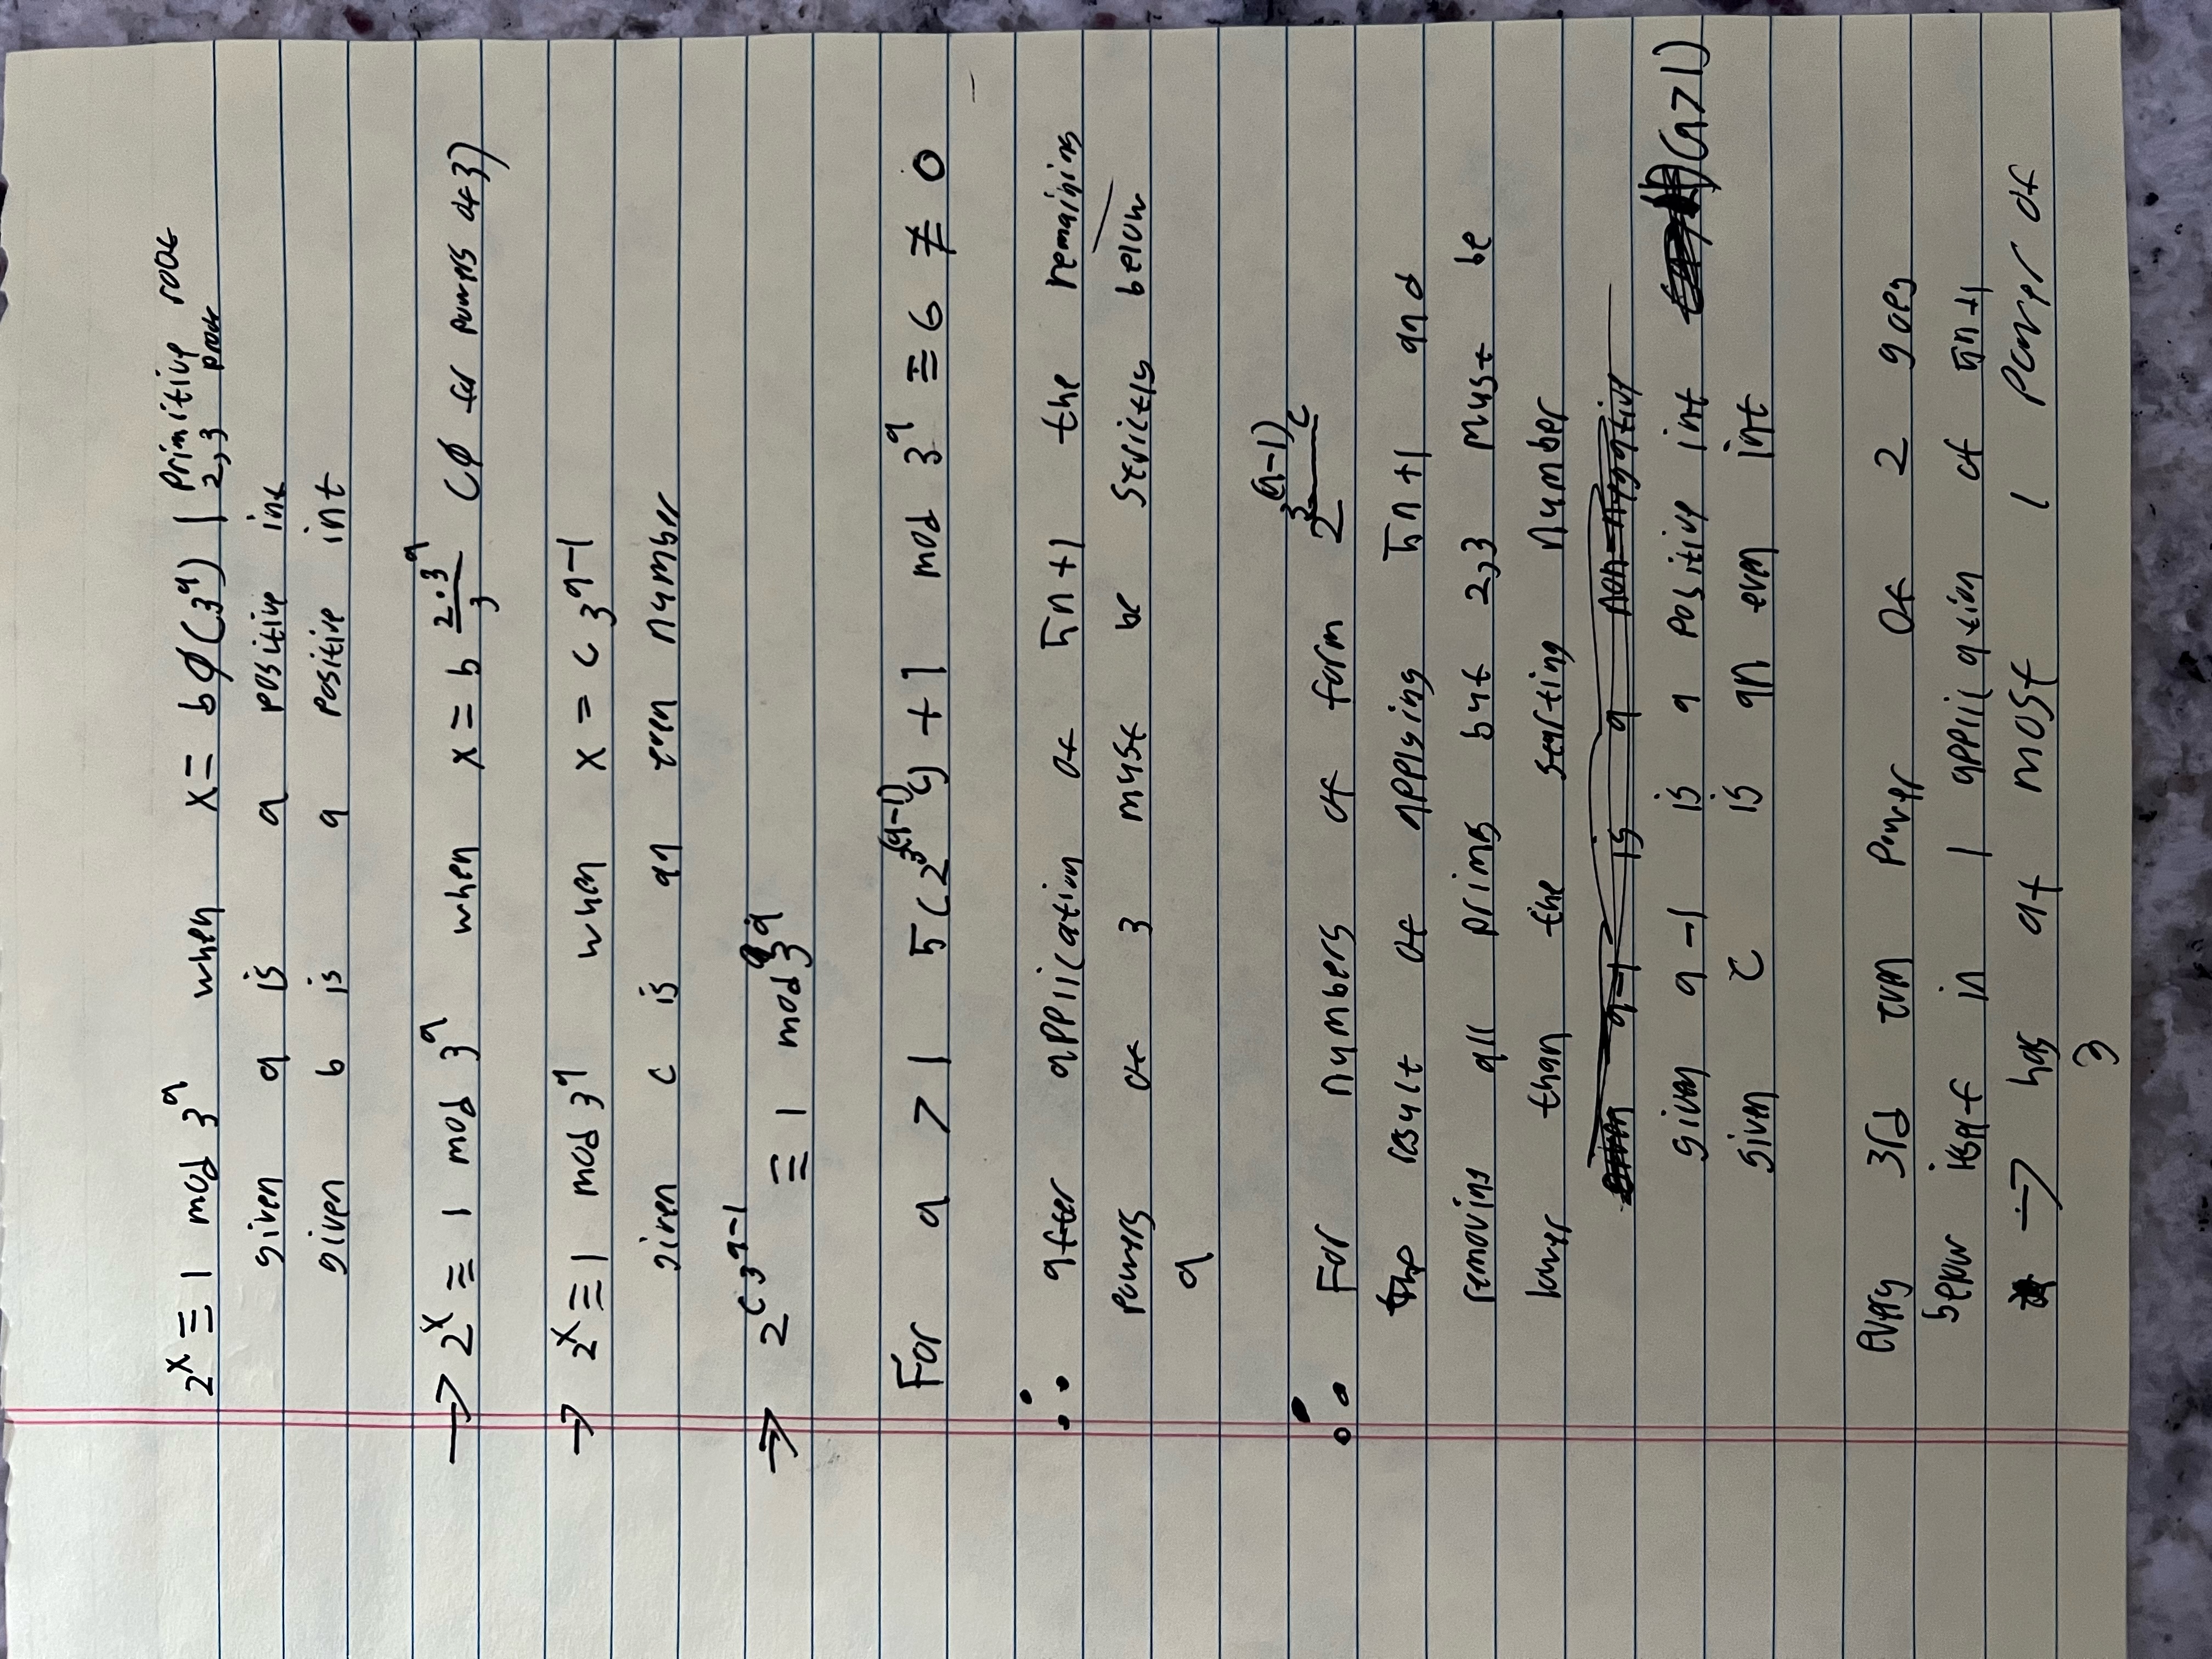 2^x ≡ 1 mod 3^a when x = bφ(3^a) | Primitive root 2, 3 proof
given a is a positive int
given b is a positive int
→ 2^x ≡ 1 mod 3^a when x = b (2·3^a)/3 (φ for powers of 3)
→ 2^x ≡ 1 mod 3^a when x = c 3^(a-1)
given c is an even number
→ 2^(c 3^(a-1)) ≡ 1 mod 3^a
For a > 1 5(2^(3^(a-1) c)) + 1 mod 3^a ≡ 6 ≢ 0
∴ after application of 5n+1 the remaining
powers of 3 must be strictly below
a
∴ For numbers of form 2^(3^(a-1) c)
the result of applying 5n+1 and
removing all prims but 2,3 must be
lower than the starting number
given a-1 is a non-negative
given a-1 is a positive int (a>1)
given c is an even int
every 3rd even power of 2 goes
below itself in 1 application of 5n+1
→ has at most 1 power of
3